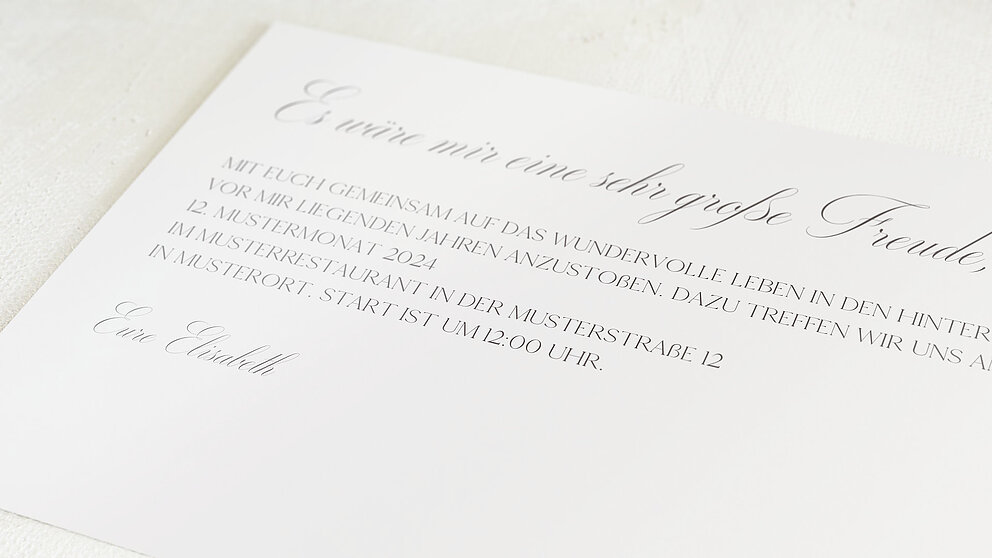 Es wäre mir eine sehr große Freude,
MIT EUCH GEMEINSAM AUF DAS WUNDERVOLLE LEBEN IN DEN HINTER
VOR MIR LIEGENDEN JAHREN ANZUSTOßEN. DAZU TREFFEN WIR UNS AM
12. MUSTERMONAT 2024
IM MUSTERRESTAURANT IN DER MUSTERSTRAßE 12
IN MUSTERORT. START IST UM 12:00 UHR.
Eure Elisabeth